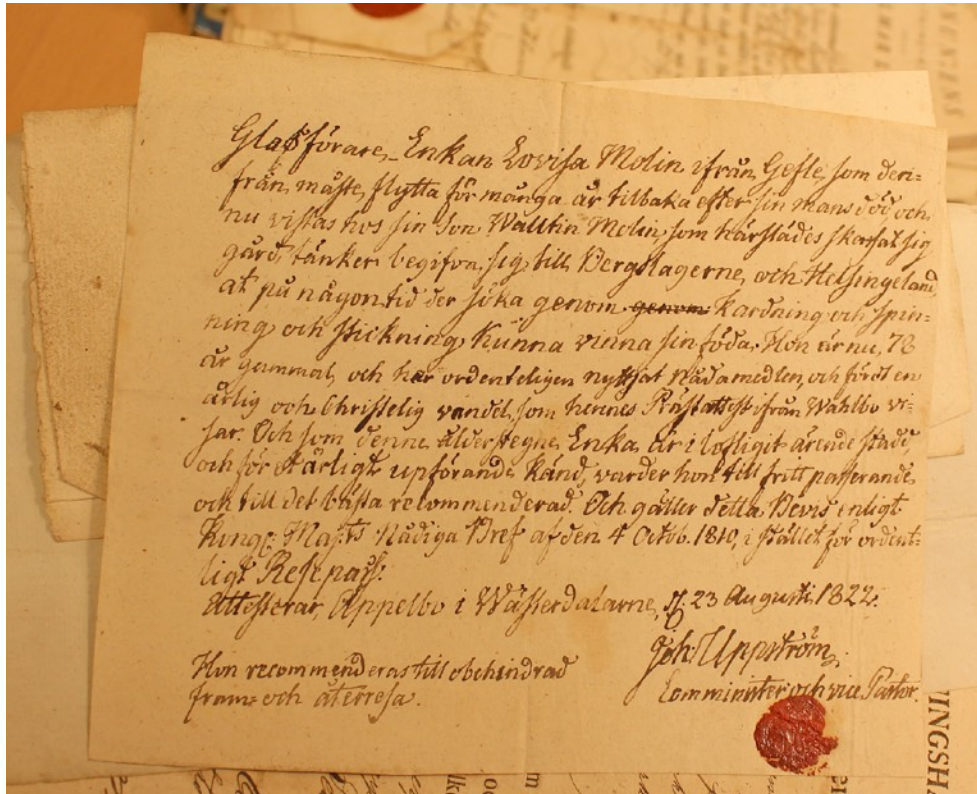 Glasförare-Enkan Lovisa Molin ifrån Gefle, som deri-
från måste flytta för många år tilbaka efter sin mans död, och
nu vistas hos sin Son Walltin Molin, som härstädes skaffat sig
gård, tänker begifva sig till Bergslagerne, och Helsingeland,
at på någon tid der söka genom genom Kardning och Spin-
ning och Stickning kunna vinna sin föda. Hon är nu, 78
år gammal, och har ordenteligen nyttjat Nådamedlen, och fördt en
ärlig och Christelig vandel, som hennes Prästattest ifrån Wahlbo vi-
sar. Och som denne ålderstegne Enka är i lofligit ärende stadd,
och för ett ärligt upförande känd, varder hon till fritt passerande
och till det bästa recommenderad. Och gäller detta Bevis enligt
Kongl: Maj:ts Nådiga Bref af den 4 Octob. 1810, i stället för ordent-
ligt Resepass.
Attesterar, Appelbo i Wästerdalarne, d: 23 Augusti, 1822.
Joh: Uppström,
Comminister och vice Pastor.
Hon recommenderas till obehindrad
fram- och återresa.
INGSHA